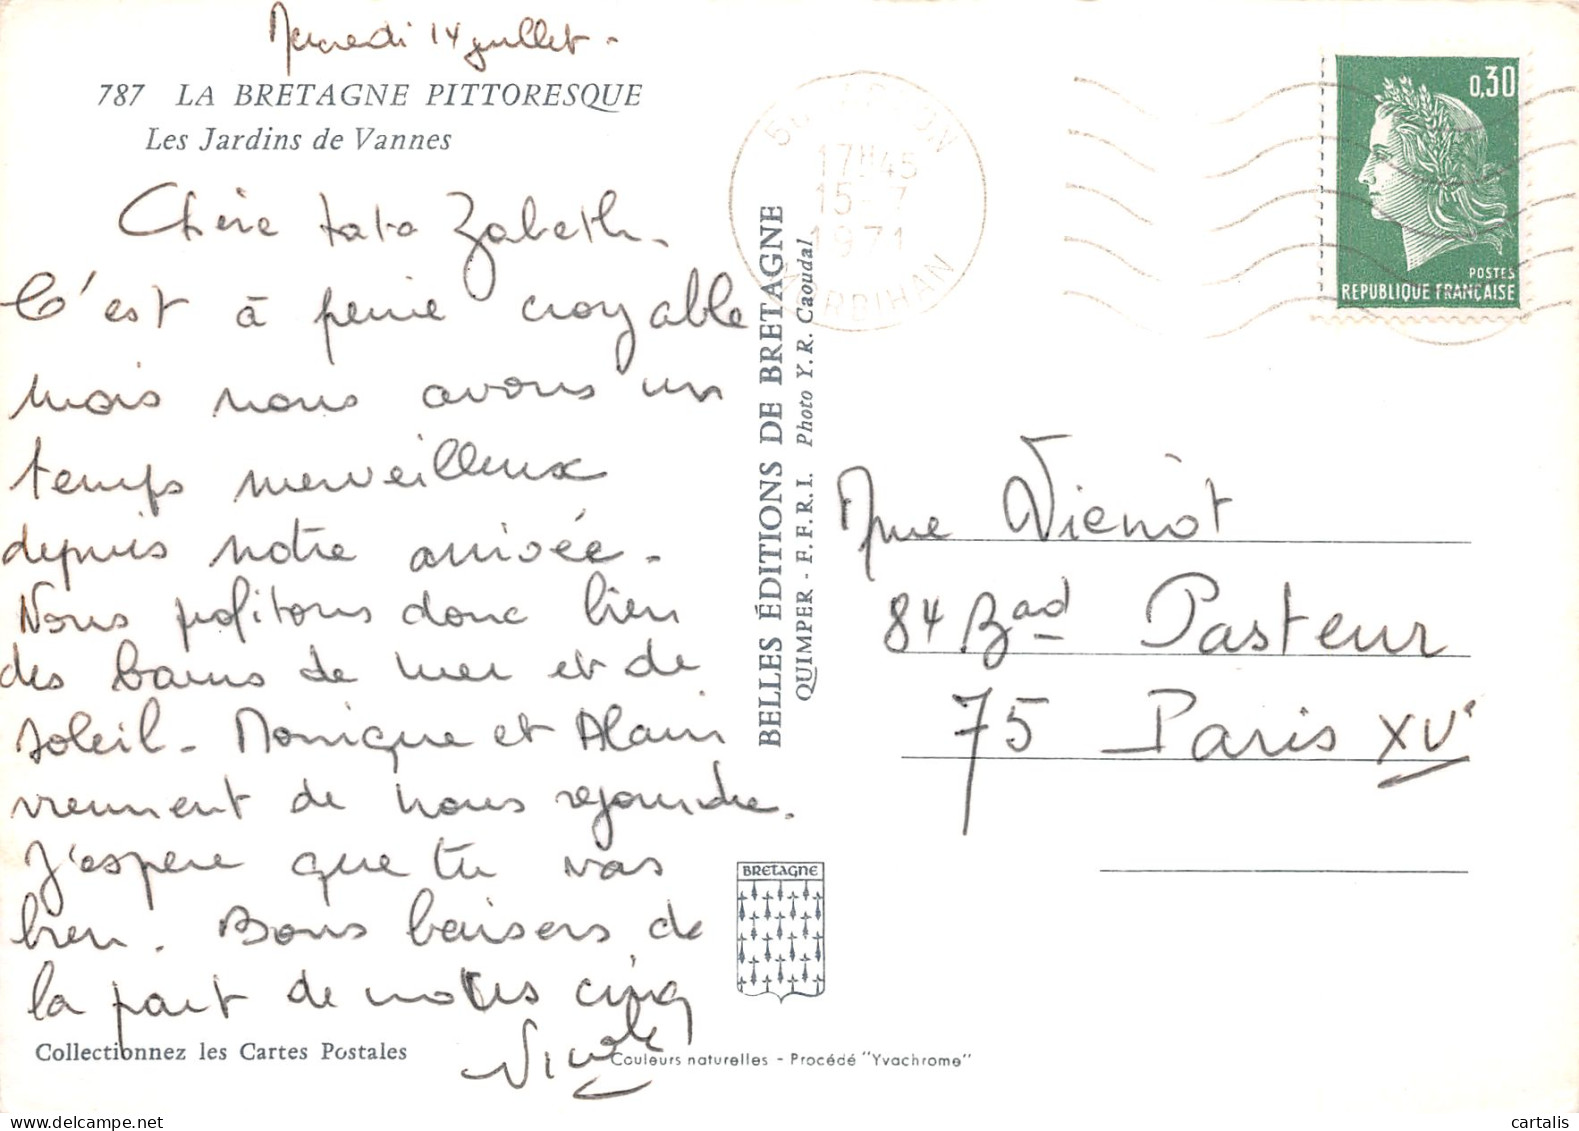 Mercredi 14 juillet -
787 LA BRETAGNE PITTORESQUE
Les Jardins de Vannes
Chère tata Zabeth.
C'est à peine croyable
mais nous avons un
temps merveilleux
depuis notre arrivée.
Nous profitons donc bien
des bains de mer et de
soleil - Monique et Alain
viennent de nous rejoindre.
J'espère que tu vas
bien. Bons baisers de
la part de nous cinq
Nicole
Collectionnez les Cartes Postales
Couleurs naturelles - Procédé "Yvachrome"
BELLES ÉDITIONS DE BRETAGNE
QUIMPER - F.F.R.I. Photo Y.R. Caoudal
BRETAGNE
17H45
15-7
1971
MORBIHAN
0,30
POSTES
REPUBLIQUE FRANÇAISE
Mme Vienot
84 Bad Pasteur
75 Paris XVe
cartalis